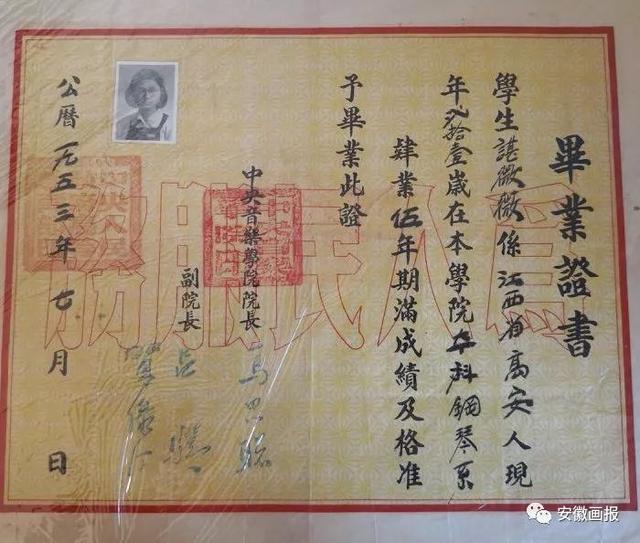 畢業證書
學生諶微微係江西省高安人現
年弍拾壹歲在本學院本科鋼琴系
肆業伍年期滿成績及格准
予畢業此證
中央音樂學院院長 馬思聰
副院長 呂驥
賀綠汀
公曆一九五三年七月 日
為人民服務
安徽画报